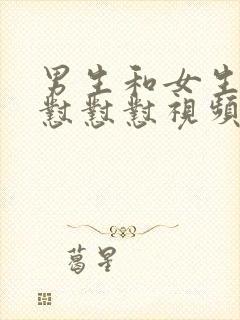 男生和女生
懟懟懟視頻
葛星